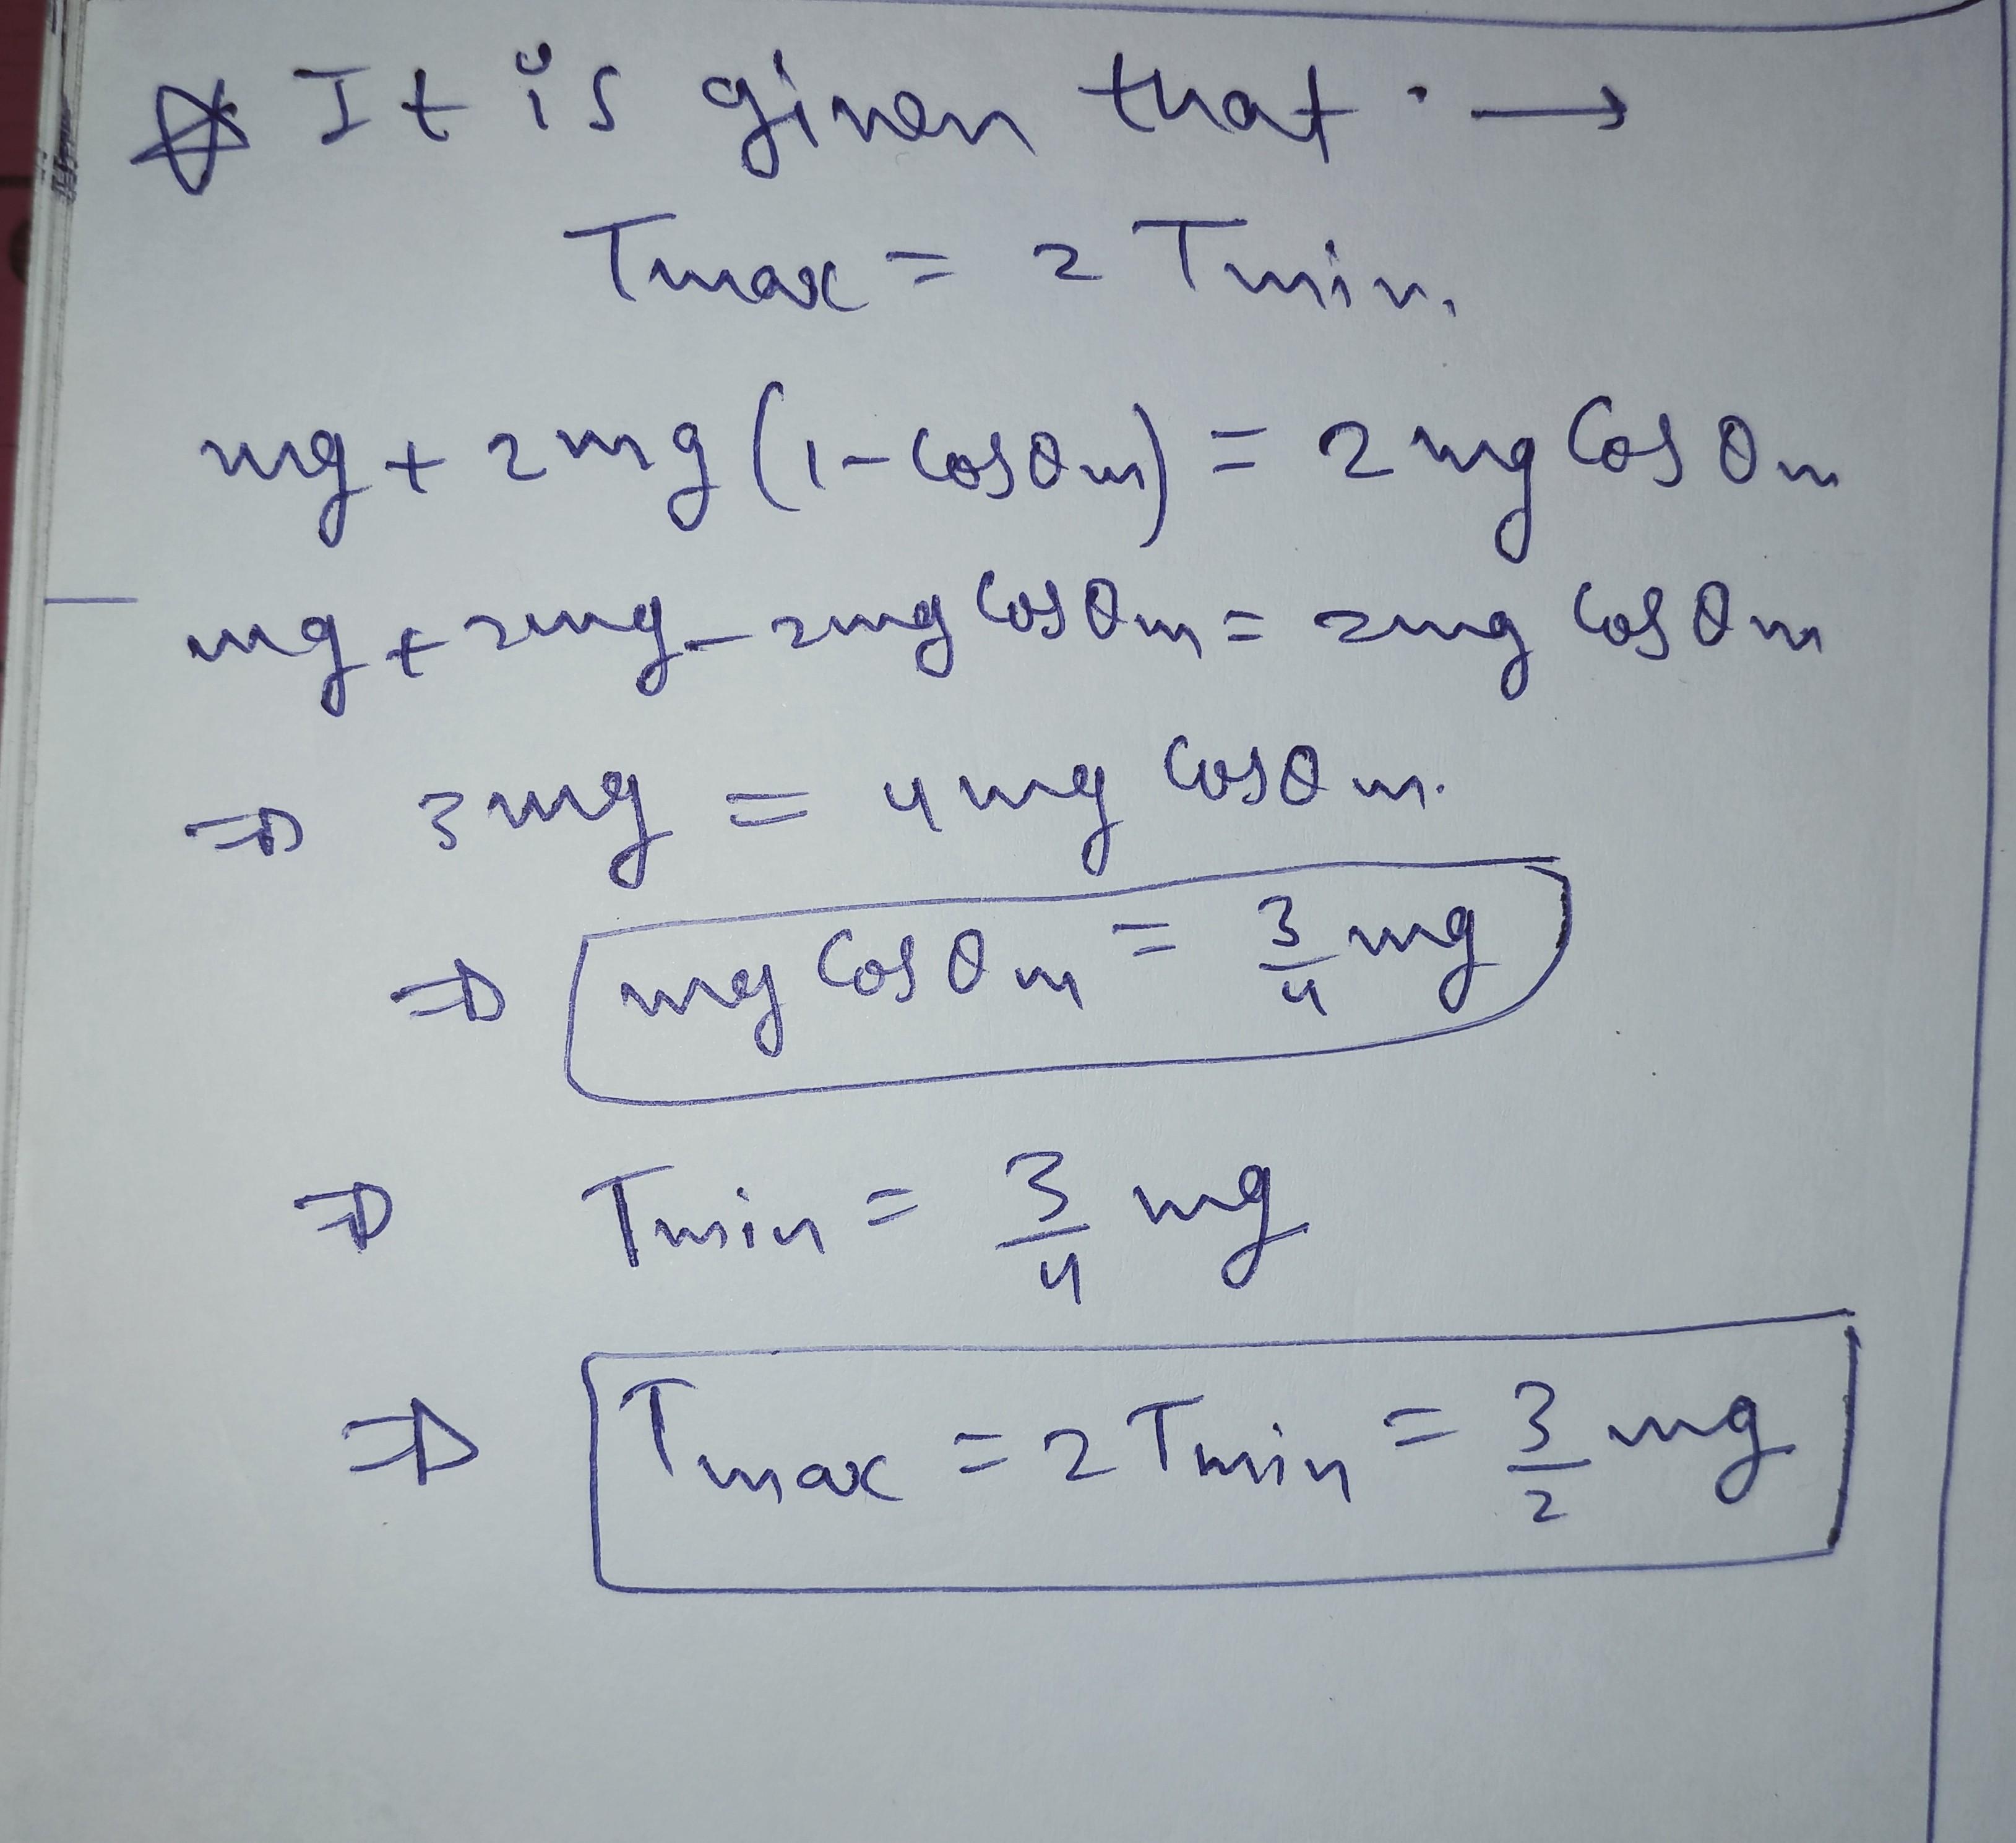 It is given that :→
Tmax = 2 Tmin.
mg + 2mg (1-Cosθm) = 2mg Cosθm
mg + 2mg - 2mg Cosθm = 2mg Cosθm
⇒ 3mg = 4mg Cosθm.
⇒ mg Cosθm = 3/4 mg
⇒ Tmin = 3/4 mg
⇒ Tmax = 2 Tmin = 3/2 mg